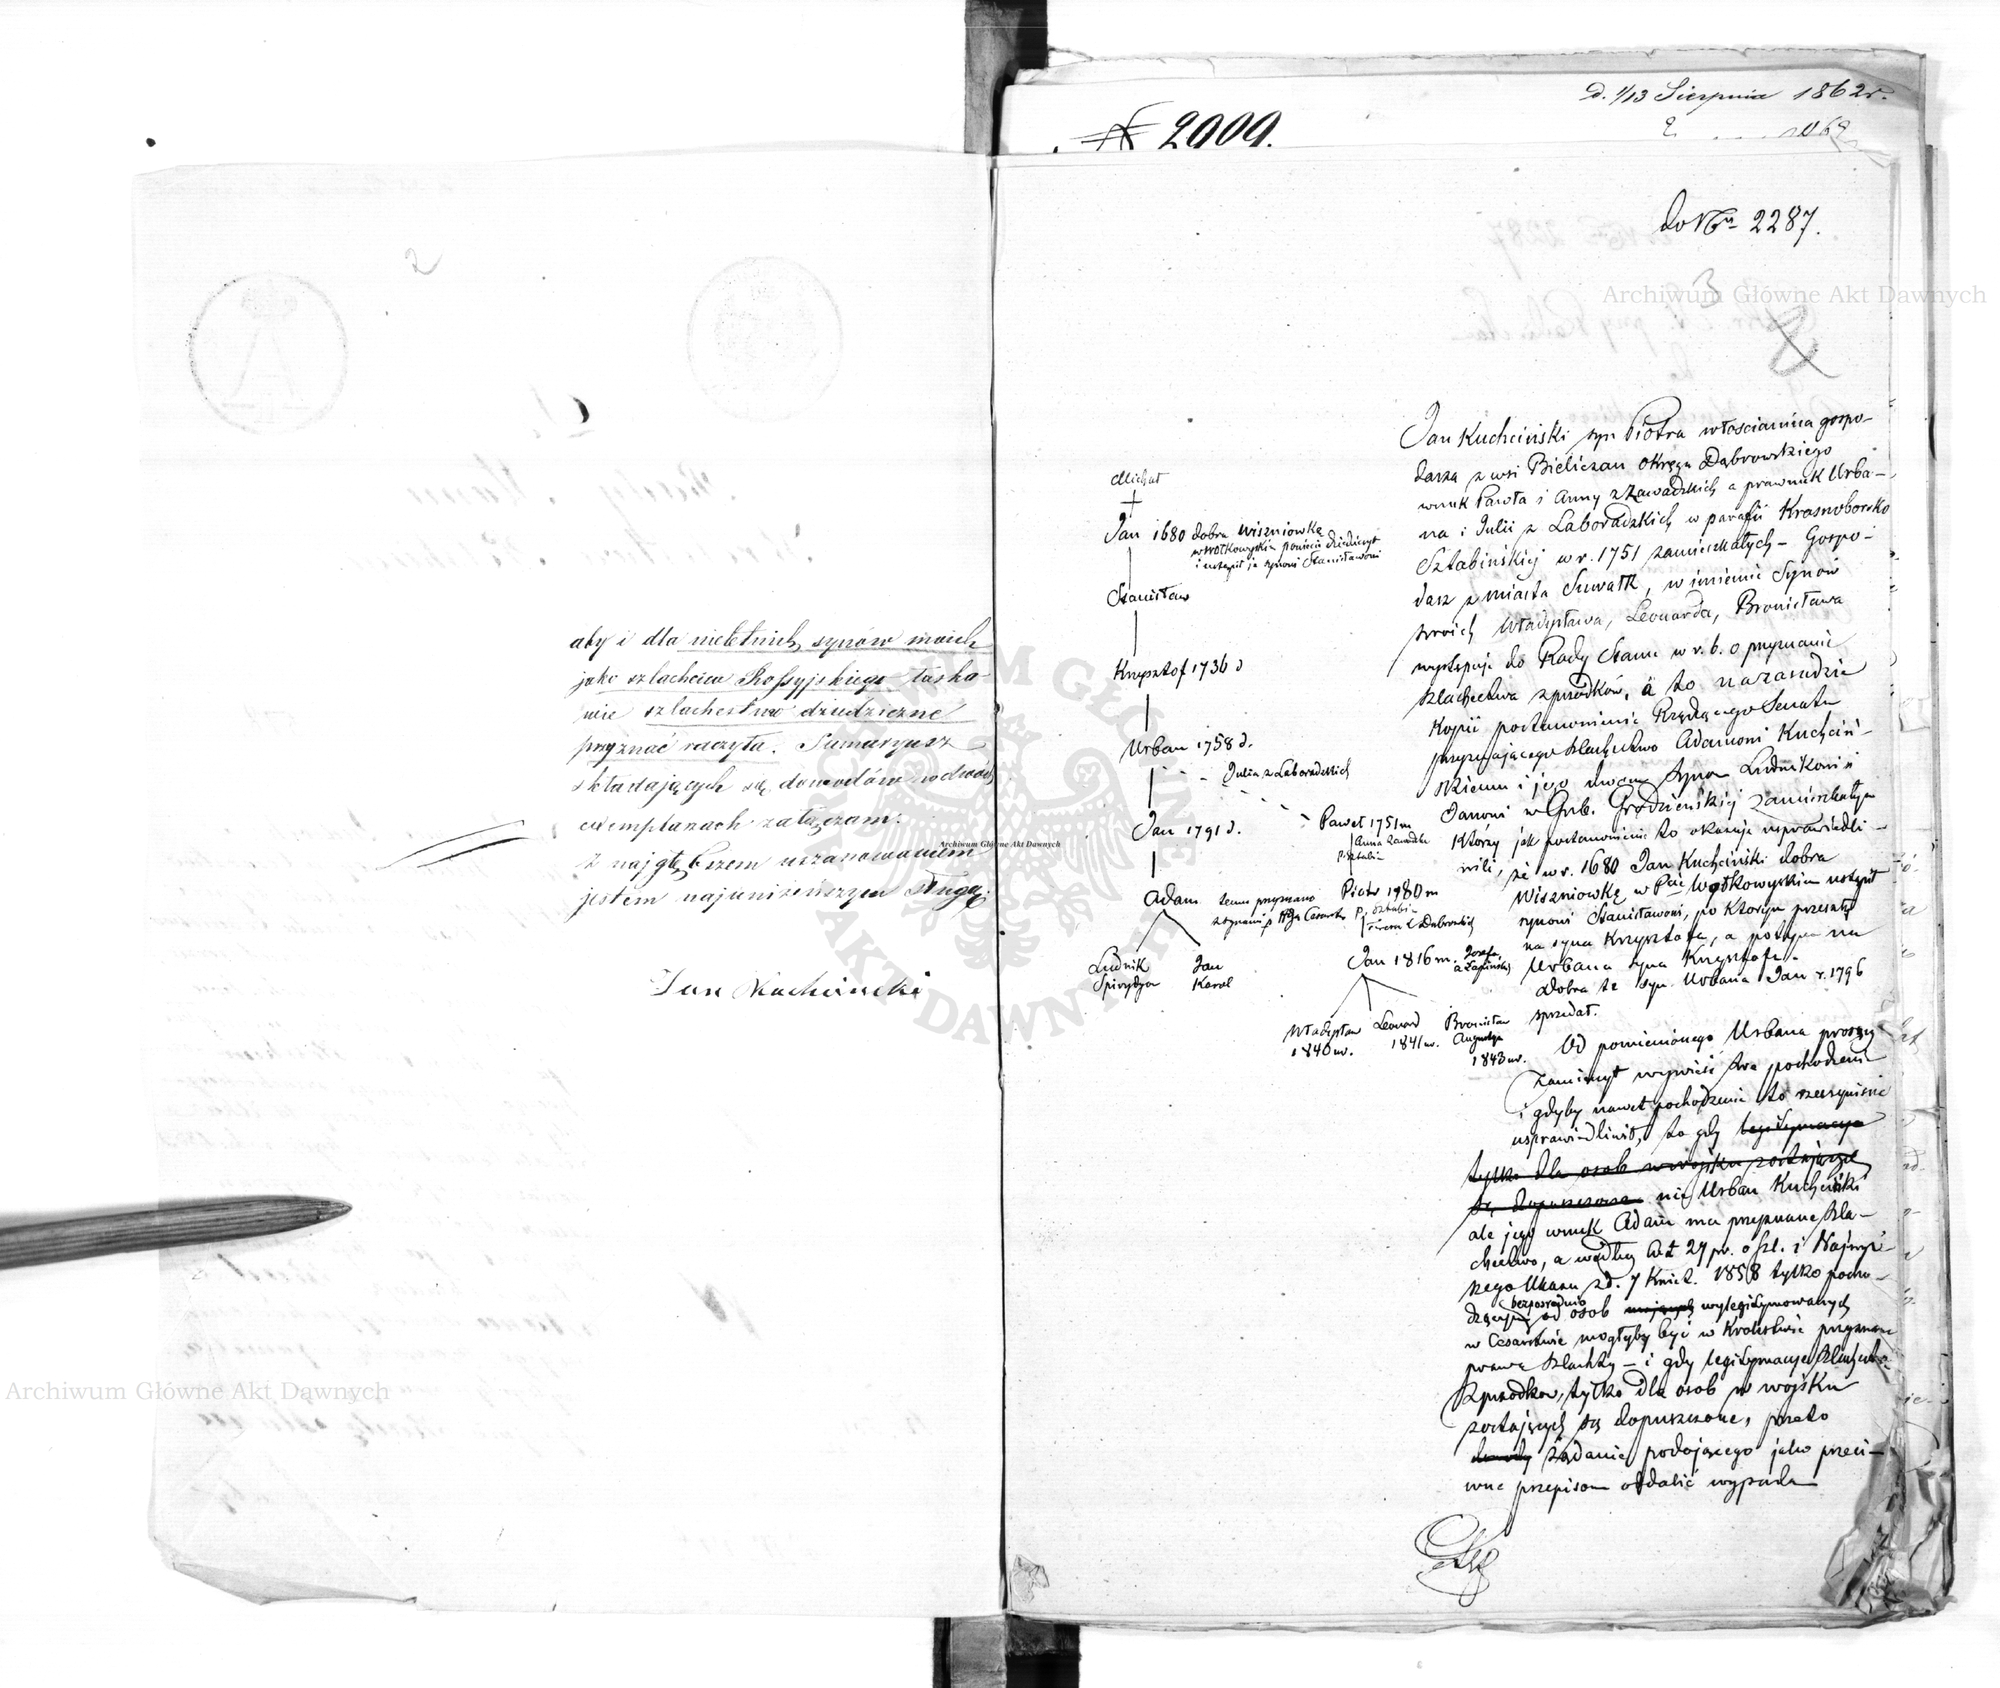 2
aby i dla nieletnich synów moich
jako szlachcica Rossyjskiego łaska-
wie szlachectwo dziedziczne
przyznać raczyła. Sumaryusz
składających się dowodów w dwóch
exemplarzach załączam.
Z najgłębszem uszanowaniem
jestem najuniżeńszym sługą.
Jan Kuchcinski
d. 1/13 Sierpnia 1862 r.
№ 2000.
do Nru 2287.
3
Michał
Jan 1680 dobra Wiszniowkę
w Wołkowyskim powiecie dziedziczył
i ustąpił je synowi Stanisławowi
Stanisław
Krzysztof 1736 d
Urban 1758 d.
Julia z Laboradzkich
Jan 1791 d.
Paweł 1751 m
Anna Zawadzka
p. Sztabin
Adam temu przyznano
Piotr 1780 m
p. Sztabin
z Dąbrowskich
Ludwik
Spirydyon
Jan
Karol
Jan 1816 m. Józefa
z Łapińskich
Władysław
1840 ur.
Leonard
1841 ur.
Bronisław
Augustyn
1843 ur.
Jan Kuchciński syn Piotra włościanina gospo-
darza z wsi Bieliczan okręgu Dąbrowskiego
wnuk Pawła i Anny z Zawadzkich a prawnuk Urba-
na i Julii z Laboradzkich w parafii Krasnoborsko
Sztabińskiej w r. 1751 zamieszkałych - Gospo-
darz z miasta Suwałk, w imieniu Synów
swoich Władysława, Leonarda, Bronisława
występuje do Rady Stanu w r. b. o przyznanie
szlachectwa z przodków, a to na zasadzie
kopii postanowienia Rządzącego Senatu
przyznającego szlachectwo Adamowi Kuchciń-
skiemu i jego dwom synom Ludwikowi i
Janowi w Gub. Grodzieńskiej zamieszkałym
którzy jak postanowienie to okazuje usprawiedli-
wili, że w r. 1680 Jan Kuchciński dobra
Wiszniowkę w Pcie Wołkowyskim ustąpił
synowi Stanisławowi, po którym przeszły
na syna Krzysztofa, a potym na
Urbana syna Krzysztofa.
Dobra te syn Urbana Jan r. 1796
sprzedał.
Od pomienionego Urbana proszący
zamierzył wywieść swe pochodzenie
i gdyby nawet pochodzenie to rzeczywiście
usprawiedliwił, to gdy legitymacya
tylko dla osób w wojsku zostających
są dopuszczone nie Urban Kuchciński
ale jego wnuk Adam ma przyznane szla-
chectwo, a według Art 27 pr. o szl. i Najwyż-
szego Ukazu z d. 7 Kwiet. 1858 tylko pocho-
dzącym bezpośrednio od osób mających wylegitymowanych
w Cesarstwie mogłyby być w Królestwie przyznane
prawa szlachty - i gdy legitymacye szlachectwa
z przodków, tylko dla osób w wojsku
zostających są dopuszczone, przeto
dowody żądanie podającego jako przeci-
wne przepisom oddalić wypada
Archiwum Główne Akt Dawnych
Archiwum Główne Akt Dawnych
Archiwum Główne Akt Dawnych
ARCHIWUM GŁÓWNE AKT DAWNYCH